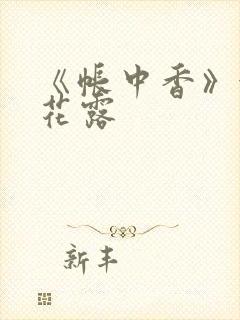 《帐中香》
花露
新丰